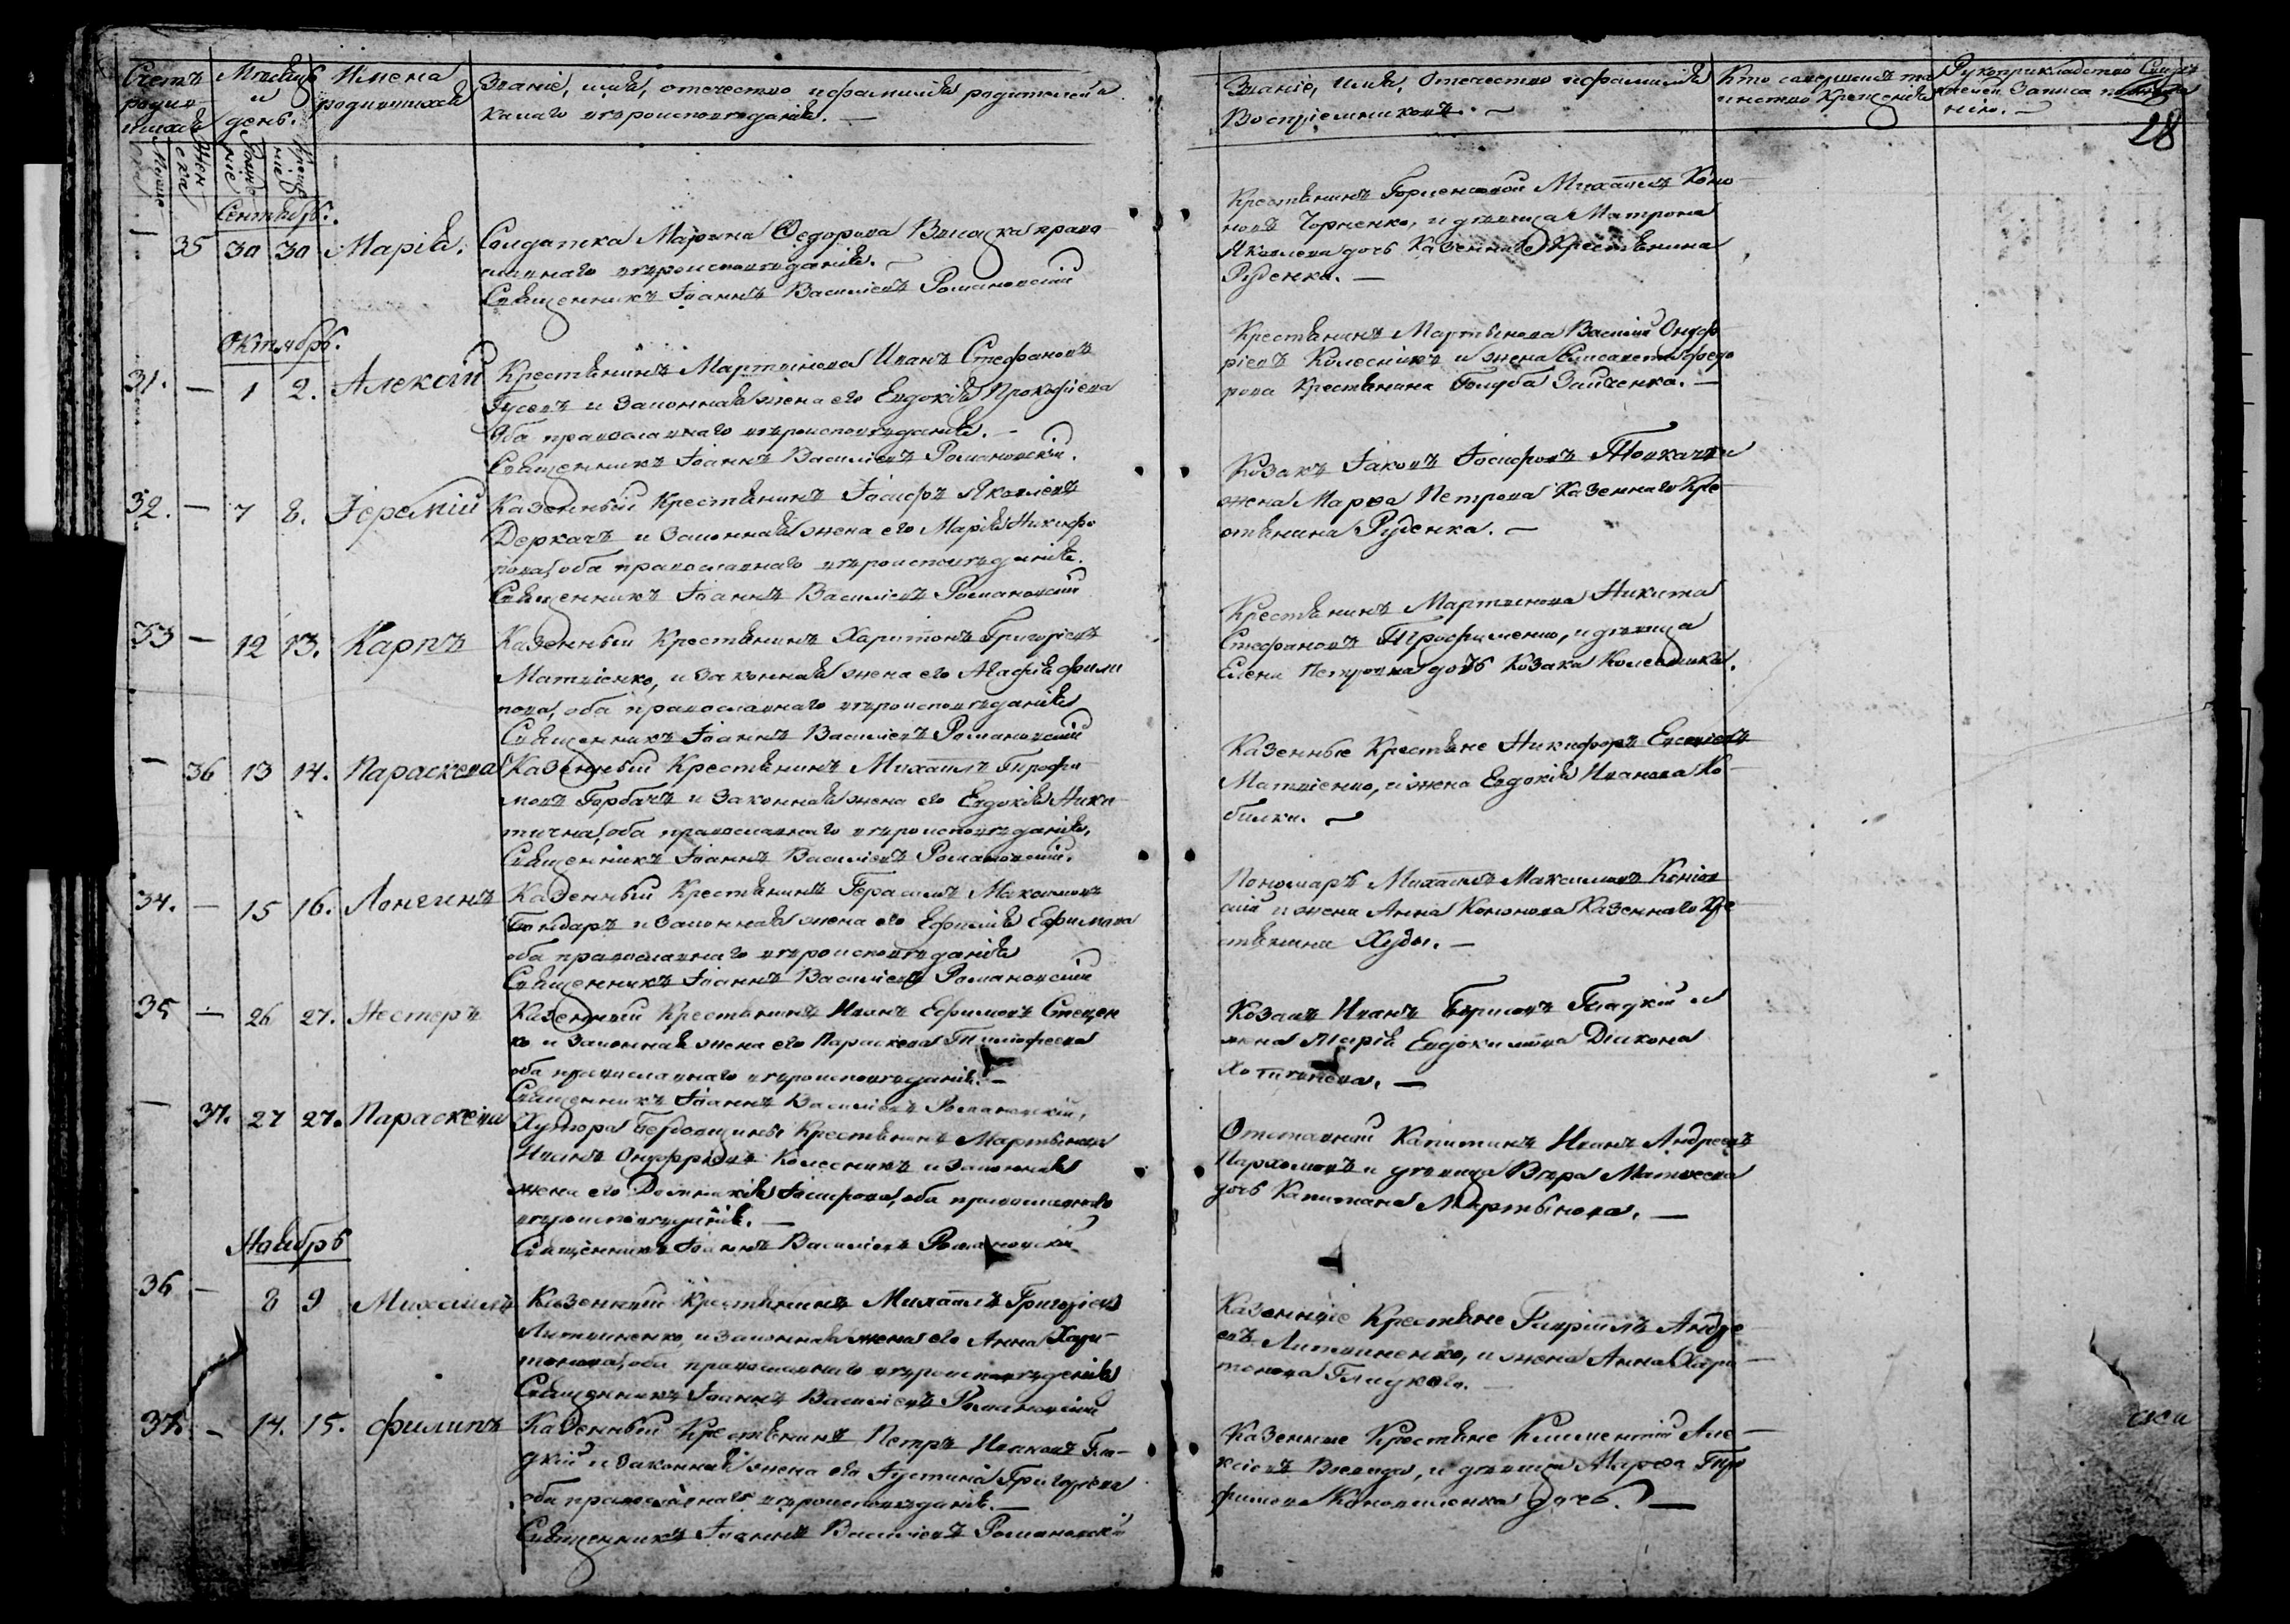 Счетъ родив-шихся
Мѣсяцъ и день.
Имена родившихся
Званіе, имя, отечество и фамилія родителей и
какаго вѣроисповѣданія. —
Мужеска
Женска
Рожденіе
Крещеніе
Званіе, имя, отечество и фамилія
Воспріемниковъ. —
Кто совершилъ та
инство Крещенія
Рукоприкладство Свидѣ
телей записи
нію. —
28
Сентябрь.
— 35 30 30 Марія.
Солдатка Марина Федорова право
славнаго вѣроисповѣданія. —
Священникъ Іоаннъ Василіевъ Романовскій
Крестьянинъ Михаилъ Коно
новъ Чорненко, и дѣвица Матрона
Яковлева дочь Казеннаго Крестьянина
Руденка. —
Октябрь.
31. — 1 2. Алексій
Крестьянинъ Мартинова Иванъ Стефановъ
Гусевъ и Законная жена его Евдокія Прокофіева
Оба православнаго вѣроисповѣданія. —
Священникъ Іоаннъ Василіевъ Романовскій.
Крестьянинъ Мартынова Василій Онуф
ріевъ Колесникъ и жена Елисавета Федо
рова Крестьянина Голуба Зайченка. —
32. — 7 8. Іеремій
Казенный Крестьянинъ Іосифъ Яковлевъ
Деркачъ и Законная жена его Марія Никифо
рова, оба православнаго вѣроисповѣданія.
Священникъ Іоаннъ Василіевъ Романовскій
Козакъ Іаковъ Іосифовъ Толкачъ и
жена Марѳа Петрова Казеннаго Кре
стьянина Руденка. —
33 — 12 13. Карпъ
Казенный Крестьянинъ Харитонъ Григоріевъ
Матвіенко, и законная жена его Агафія Фили
пова, оба православнаго вѣроисповѣданія
Священникъ Іоаннъ Василіевъ Романовскій
Крестьянинъ Мартинова Никита
Стефановъ Трофименко, и дѣвица
Елена Петровна дочь Козака Колесника.
— 36 13 14. Параскева
Казенный Крестьянинъ Михаилъ Трофи
мовъ Горбачъ и Законная жена его Евдокія Ники
тична, оба православнаго вѣроисповѣданія,
Священникъ Іоаннъ Василіевъ Романовскій.
Казенные Крестьяне Никифоръ Евсевіевъ
Матвіенко, и жена Евдокія Иванова Ко
билки. —
34. — 15 16. Лонгинъ
Казенный Крестьянинъ Герасимъ Максимовъ
Бондарь и Законная жена его Ефимія Ефимова
оба православнаго вѣроисповѣданія
Священникъ Іоаннъ Василіевъ Романовскій
Пономарь Михаилъ Максимовъ
и жена Анна Кононова Казеннаго Кре
стьянина Худы. —
35 — 26 27. Нестеръ
Казенный Крестьянинъ Иванъ Ефимовъ Стецен
ко и Законная жена его Параскева Тимофеева
оба православнаго вѣроисповѣданія. —
Священникъ Іоаннъ Василіевъ Романовскій,
Козакъ Иванъ Гладкій и
жена Марія Евдокимова Діакона
— 37. 27 27. Параскева
Хутора Крестьянинъ Мартынова
Иванъ Онуфріевъ Колесникъ и законная
жена его Домникія Іосифова, оба православнаго
вѣроисповѣданія. —
Священникъ Іоаннъ Василіевъ Романовскій
Отставной Капитанъ Иванъ Андреевъ
Пархомовъ и дѣвица Вѣра Матвеева
дочь Капитана Мартынова. —
Ноябрь
36 — 8 9 Михаилъ
Казенный Крестьянинъ Михаилъ Григоріевъ
Литвиненко, и законная жена его Анна Хари-
тонова, оба православнаго вѣроисповѣденія
Священникъ Іоаннъ Василіевъ Романовскій
Казенніе Крестьяне Гавріилъ Андре-
евъ Литвиненко, и жена Анна Хари-
тонова Гладкого. —
37. — 14. 15. Филипъ
Казенный Крестьянинъ Петръ Ивановъ Гла-
дкій и Законная жена его Іустина Григоріева
оба православнаго вѣроисповѣданія. —
Священникъ Іоаннъ Василіевъ Романовскій
Казенные Крестьяне Климентій Але-
ксіевъ и дѣвица Марѳа Тро
фимова Коноваленка дочь. —